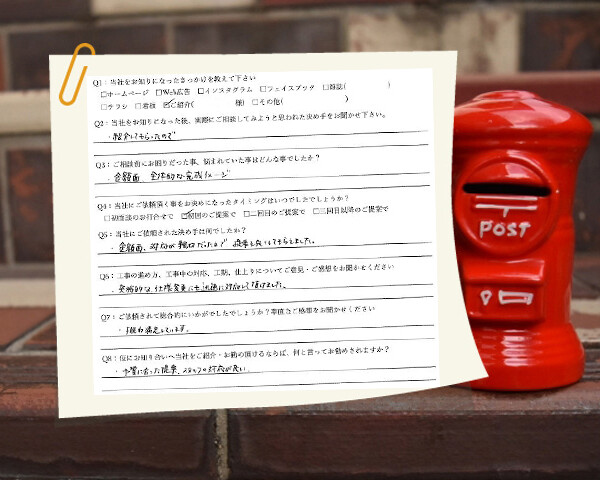 Q1：当社をお知りになったきっかけを教えて下さい
□ホームページ □Web広告 □インスタグラム □フェイスブック □雑誌( )
□チラシ □看板 ☑ご紹介( 様) □その他( )
Q2：当社をお知りになった後、実際にご相談してみようと思われた決め手をお聞かせ下さい。
・紹介してもらったので
Q3：ご相談前にお困りだった事、悩まれていた事はどんな事でしたか？
・金額面、全体的な完成イメージ
Q4：当社にご依頼頂く事をお決めになったタイミングはいつでしたでしょうか？
□初面談のお打合せで ☑初回のご提案で □二回目のご提案で □三回目以降のご提案で
Q5：当社にご依頼された決め手は何でしたか？
・金額面、対応が親切だったので 提案も良くしてもらえました。
Q6：工事の進め方、工事中の対応、工期、仕上りについてご意見・ご感想をお聞かせください
・突発的な仕様変更にも迅速に対応して頂けました。
Q7：ご依頼されて総合的にいかがでしたでしょうか？率直なご感想をお聞かせください
・満足しています。
Q8：仮にお知り合いへ当社をご紹介・お勧め頂けるならば、何と言ってお勧めされますか？
・予算に合った提案、スタッフの対応が良い
POST